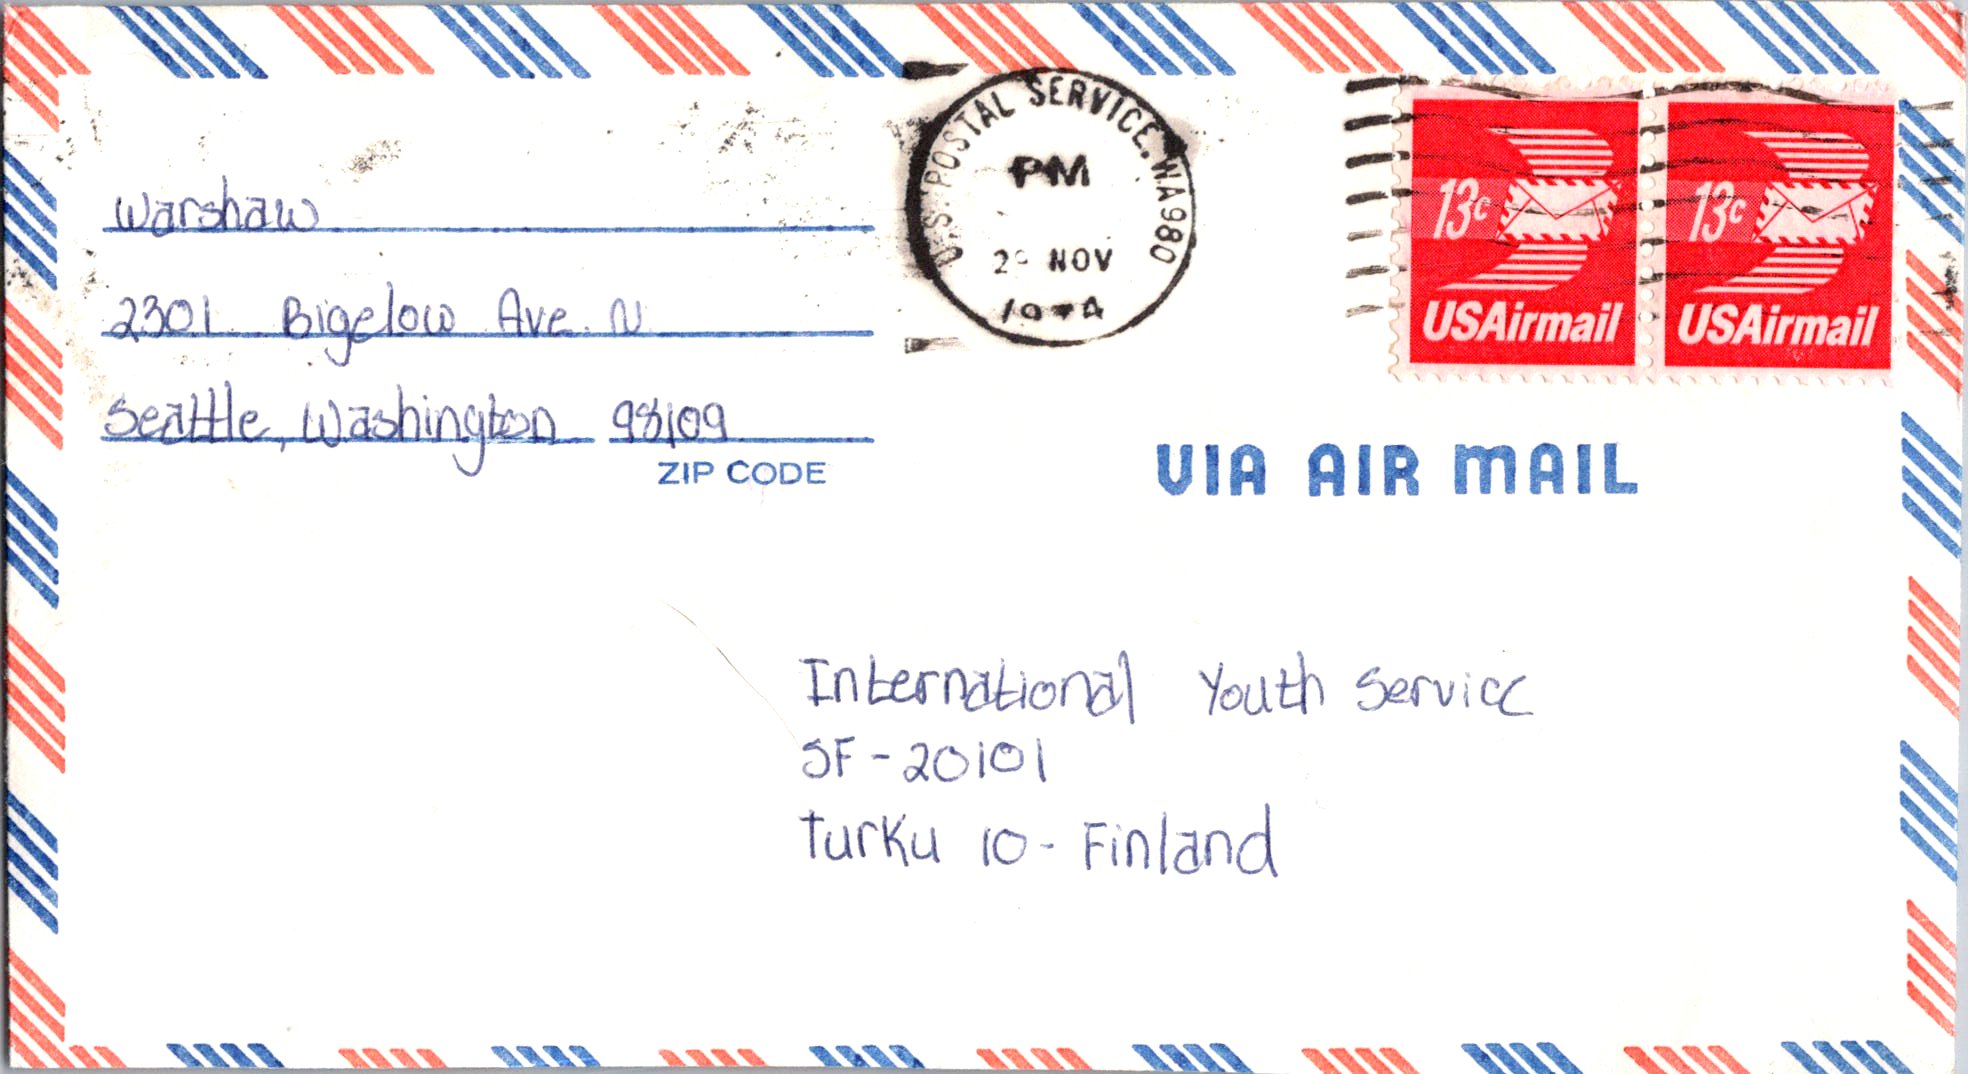 Warshaw
2301 Bigelow Ave. N
Seattle, Washington 98109
ZIP CODE
U.S. POSTAL SERVICE. WA 980
PM
NOV
13c
USAirmail
13c
USAirmail
VIA AIR MAIL
International Youth Service
SF-20101
Turku 10 - Finland